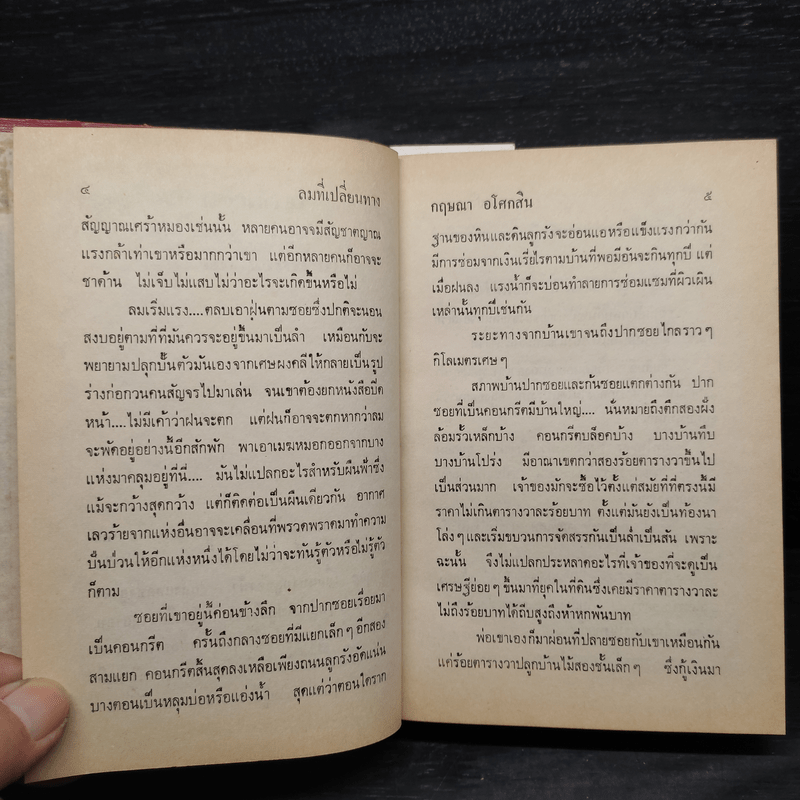 ๔ ลมที่เปลี่ยนทาง
สัญญาณเศร้าหมองเช่นนั้น หลายคนอาจจมีสัญชาตญาณ
แรงกล้าเท่าเขาหรือมากกว่าเขา แต่อีกหลายคนก็อาจจะ
ชาด้าน ไม่เจ็บไม่แสบไม่ว่าอะไรจะเกิดขึ้นหรือไม่
ลมเริ่มแรง....ตลบเอาฝุ่นตามซอยซึ่งปกติจะนอน
สงบอยู่ตามที่ที่มันควรจะอยู่ขึ้นมาเป็นลำ เหมือนกับจะ
พยายามปลุกปั้นตัวมันเองจากเศษผงคลีให้กลายเป็นรูป
ร่างก่อกวนคนสัญจรไปมาเล่น จนเขาต้องยกหนังสือปิด
หน้า....ไม่มีเค้าว่าฝนจะตก แต่ฝนก็อาจจะตกหากว่าลม
จะพัดอยู่อย่างนี้อีกสักพัก พาเอาเมฆหมอกออกจากบาง
แห่งมาคลุมอยู่ที่นี่.... มันไม่แปลกอะไรสำหรับผืนฟ้าซึ่ง
แม้จะกว้างสุดกว้าง แต่ก็ติดต่อเป็นผืนเดียวกัน อากาศ
เลวร้ายจากแห่งอื่นอาจจะเคลื่อนที่พรวดพราดมาทำความ
ปั่นป่วนให้อีกแห่งหนึ่งได้โดยไม่ว่าจะทันรู้ตัวหรือไม่รู้ตัว
ก็ตาม
ซอยที่เขาอยู่นี้ค่อนข้างลึก จากปากซอยเรื่อยมา
เป็นคอนกรีต ครั้นถึงกลางซอยที่มีแยกเล็กๆ อีกสอง
สามแยก คอนกรีตสิ้นสุดลงเหลือเพียงถนนลูกรังอัดแน่น
บางตอนเป็นหลุมบ่อหรือแอ่งน้ำ สุดแต่ว่าตอนใดราก
กฤษณา อโศกสิน ๕
ฐานของหินและดินลูกรังจะอ่อนแอหรือแข็งแรงกว่ากัน
มีการซ่อมจากเงินเรี่ยไรตามบ้านที่พอมีอันจะกินทุกปี แต่
เมื่อฝนลง แรงน้ำก็จะบ่อนทำลายการซ่อมแซมที่ผิวเผิน
เหล่านั้นทุกปีเช่นกัน
ระยะทางจากบ้านเขาจนถึงปากซอยไกลราวๆ
กิโลเมตรเศษๆ
สภาพบ้านปากซอยและก้นซอยแตกต่างกัน ปาก
ซอยที่เป็นคอนกรีตมีบ้านใหญ่.... นั่นหมายถึงตึกสองฝั่ง
ล้อมรั้วเหล็กบ้าง คอนกรีตบล็อคบ้าง บางบ้านทึบ
บางบ้านโปร่ง มีอาณาเขตกว่าสองร้อยตารางวาขึ้นไป
เป็นส่วนมาก เจ้าของมักจะซื้อไว้ตั้งแต่สมัยที่ที่ตรงนี้มี
ราคาไม่เกินตารางวาละร้อยบาท ตั้งแต่มันยังเป็นท้องนา
โล่งๆ และเริ่มขบวนการจัดสรรกันเป็นล่ำเป็นสัน เพราะ
ฉะนั้น จึงไม่แปลกประหลาดอะไรที่เจ้าของที่จะดูเป็น
เศรษฐีย่อยๆ ขึ้นมาที่ยุคในที่ดินซึ่งเคยมีราคาตารางวาละ
ไม่ถึงร้อยบาทได้ถีบสูงถึงห้าหกพันบาท
พ่อเขาเองก็มาผ่อนที่ปลายซอยกับเขาเหมือนกัน
แค่ร้อยตารางวาปลูกบ้านไม้สองชั้นเล็กๆ ซึ่งกู้เงินมา